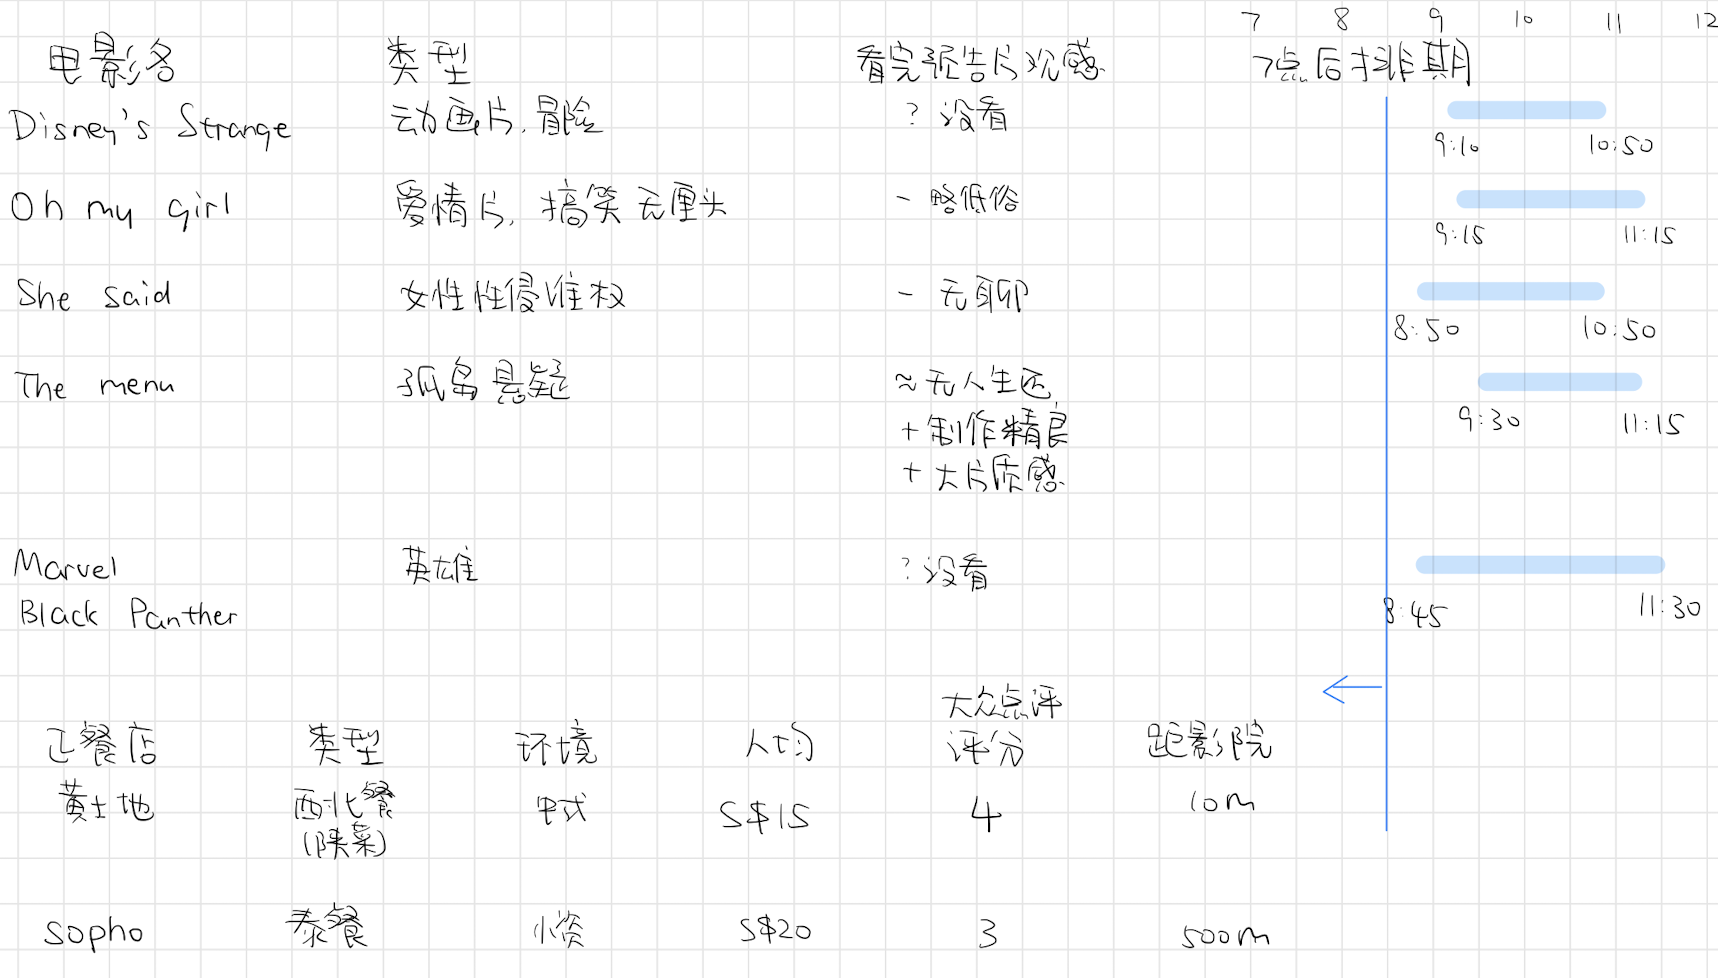 7 8 9 10 11 12
电影名 类型 看完预告片观感 7点后排期
Disney's Strange 动画片, 冒险 ? 没看
9:10 10:50
Oh my girl 爱情片, 搞笑 无厘头 - 略低俗
9:15 11:15
She said 女性性侵维权 - 无聊
8:50 10:50
The menu 孤岛悬疑 ≈ 无人生还
9:30 11:15
+ 制作精良
+ 大片质感
Marvel 英雄 ? 没看
Black Panther 8:45 11:30
大众点评
正餐店 类型 环境 人均 评分 距影院
黄土地 西北餐 中式 S$15 4 10m
(陕菜)
sopho 泰餐 小资 S$20 3 500m